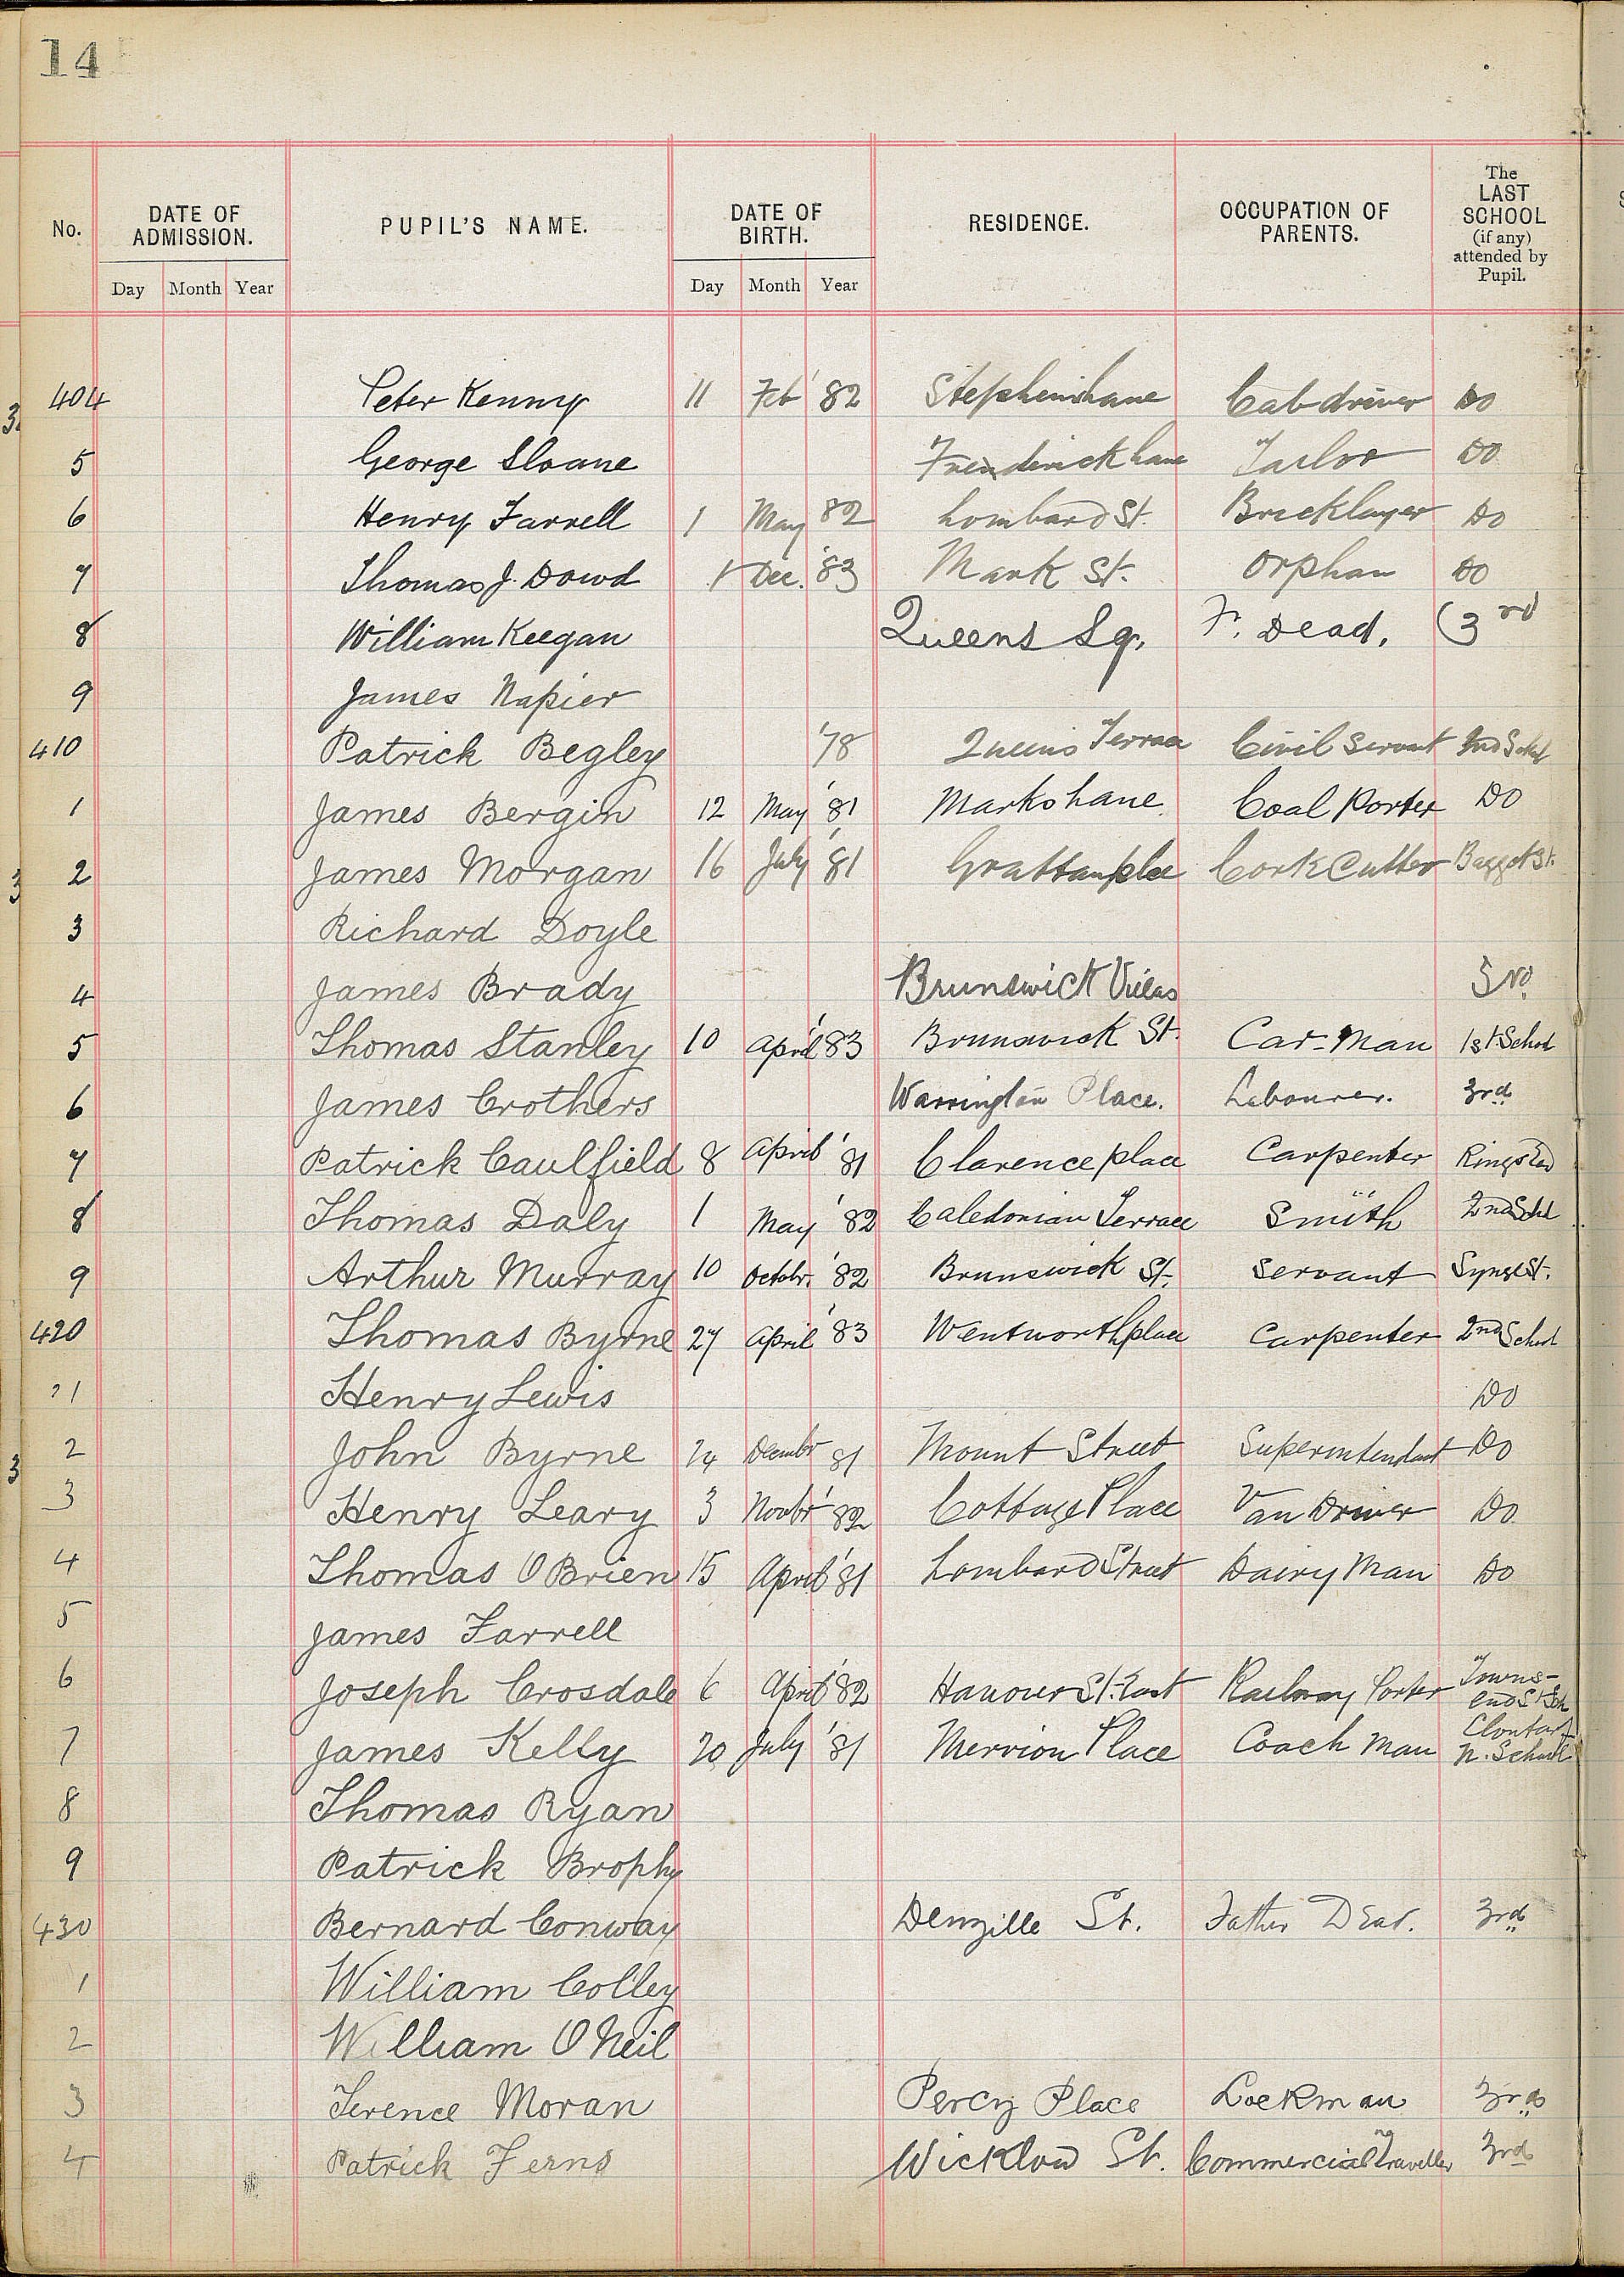 14
No. DATE OF ADMISSION. PUPIL'S NAME. DATE OF BIRTH. RESIDENCE. OCCUPATION OF PARENTS. The LAST SCHOOL (if any) attended by Pupil.
Day Month Year Day Month Year
404 Peter Kenny 11 Feb '82 Stephens Lane Cab driver Do
5 George Sloane Frederick Lane Tailor Do
6 Henry Farrell 1 May '82 Lombard St. Bricklayer Do
7 Thomas J. Dowd 1 Dec. '83 Mark St. Orphan Do
8 William Keegan Queens Sq. F. Dead. (3rd
9 James Napier
410 Patrick Begley '78 Queens Terrace Civil Servant 2nd Schl
1 James Bergin 12 May '81 Marks Lane Coal Porter Do
2 James Morgan 16 July '81 Grattan place Cork Cutter Baggot St.
3 Richard Doyle
4 James Brady Brunswick Villas
5 Thomas Stanley 10 April '83 Brunswick St. Car-Man 1st School
6 James Crothers Warrington Place. Labourer. 3rd
7 Patrick Caulfield 8 April '81 Clarence place Carpenter Rings End
8 Thomas Daly 1 May '82 Caledonian Terrace Smith 2nd Schl
9 Arthur Murray 10 Octobr. '82 Brunswick St. Servant Synge St.
420 Thomas Byrne 27 April '83 Wentworth place Carpenter 2nd School
21 Henry Lewis Do
2 John Byrne 24 Decembr 81 Mount Street Superintendant Do
3 Henry Leary 3 Novbr '82 Cottage Place Van Driver Do
4 Thomas O'Brien 15 April '81 Lombard Street Dairy Man Do
5 James Farrell
6 Joseph Crosdale 6 April '82 Hanover St. East Railway Porter Towns-end St Sch
7 James Kelly 20 July '81 Merrion Place Coach Man Clontarf N. School
8 Thomas Ryan
9 Patrick Brophy
430 Bernard Conway Denzille St. Father Dead. 3rd
1 William Colley
2 William O'Neil
3 Terence Moran Percy Place Lockman 3rd
4 Patrick Ferns Wicklow St. Commercial Traveller 3rd